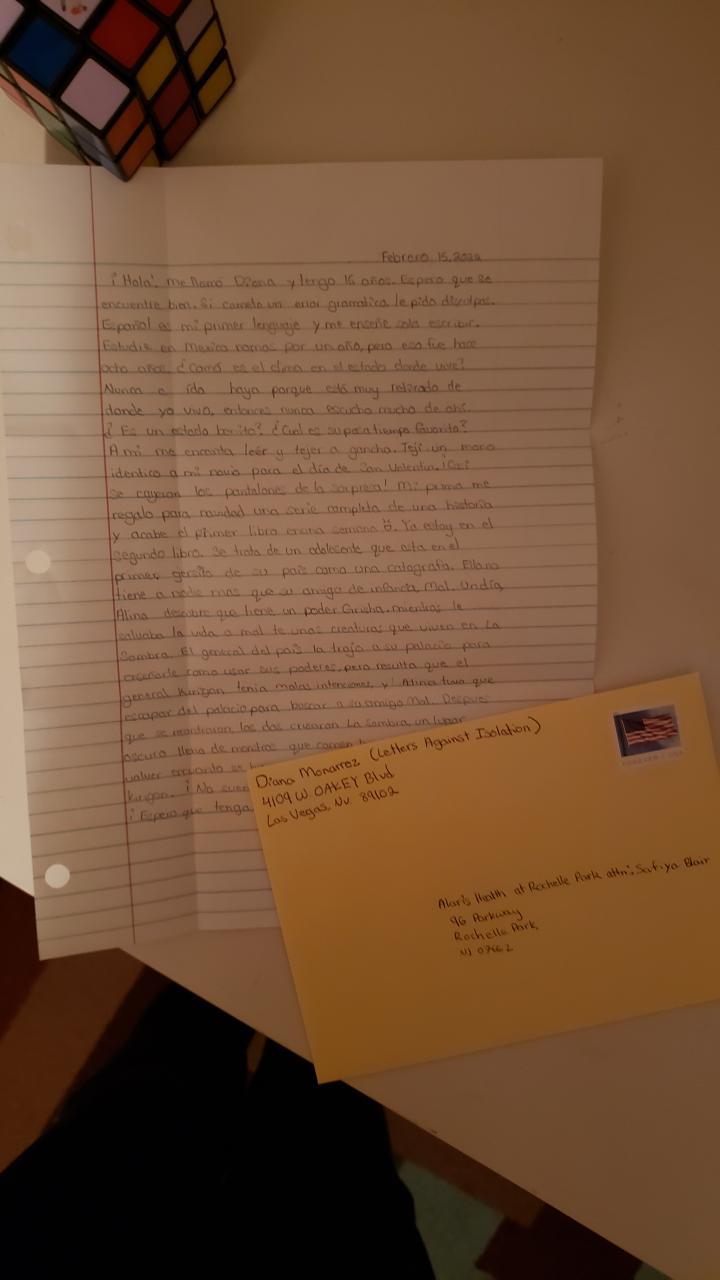 Febrero, 15, 2022
¡Hola! me llamó Diana y tengo 16 años. Espero que se
encuentre bien. Si cometo un error gramatica le pido disculpas.
Español es mi primer lenguaje y me enseñe sola escribir.
Estudie en Mexico nomas por un año, pero eso fue hace
ocho años. ¿Comó es el clima en el estado donde vive?
Nunca e ido haya porque está muy retirado de
donde yo vivo, entonces nunca escucho mucho de ahí.
¿Es un estado bonito? ¿Cuál es su pasa tiempo favorito?
A mi me encanta leér y tejer a gancho. Tejí un mono
identico a mi novio para el día de San Valentin. ¡Casi
se cayeron los pantalones de la sorpresa! Mi prima me
regalo para navidad una serie completa de una historia
y acabe el primer libro en una semana. Ya estoy en el
segundo libro. Se trata de un adolecente que esta en el
primer gersito de su país como una catografa. Ella no
tiene a nadie mas que su amigo de infancia, Mal. Un día,
Alina descubre que tiene un poder Grisha, mientras le
salvaba la vida a mal te unas creaturas que viven en La
Sombra. El general del país la trajo a su palacio para
enseñarle como usar sus poderes, pero resulta que el
general Kirigan tenia malas intenciones, y! Alina tuvo que
escapar del palacio para buscar a su amigo Mal. Despues
que se encontraron, los dos cruzaron La Sombra, un lugar
oscuro lleno de mostros que comen
Kirigan. ¡No
¡Espero que tenga
Diana Monarrez (Letters Against Isolation)
4109 W. OAKEY Blvd
Las Vegas, NV. 89102
FOREVER USA
Alaris Health at Rochelle Park attn: Safiya Blair
96 Parkway
Rochelle Park,
NJ 07662